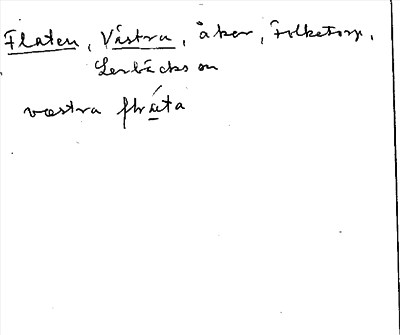 Flaten, Västra, åker, Folketorp,
Lerbäcks sn
væstra flǽta